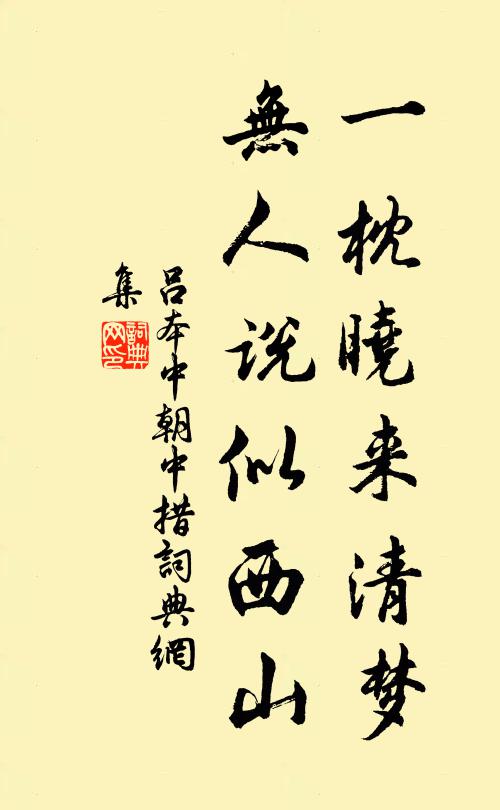 一枕曉来清梦
無人説似西山
呂本中朝中措詞典網
集
詞典網印